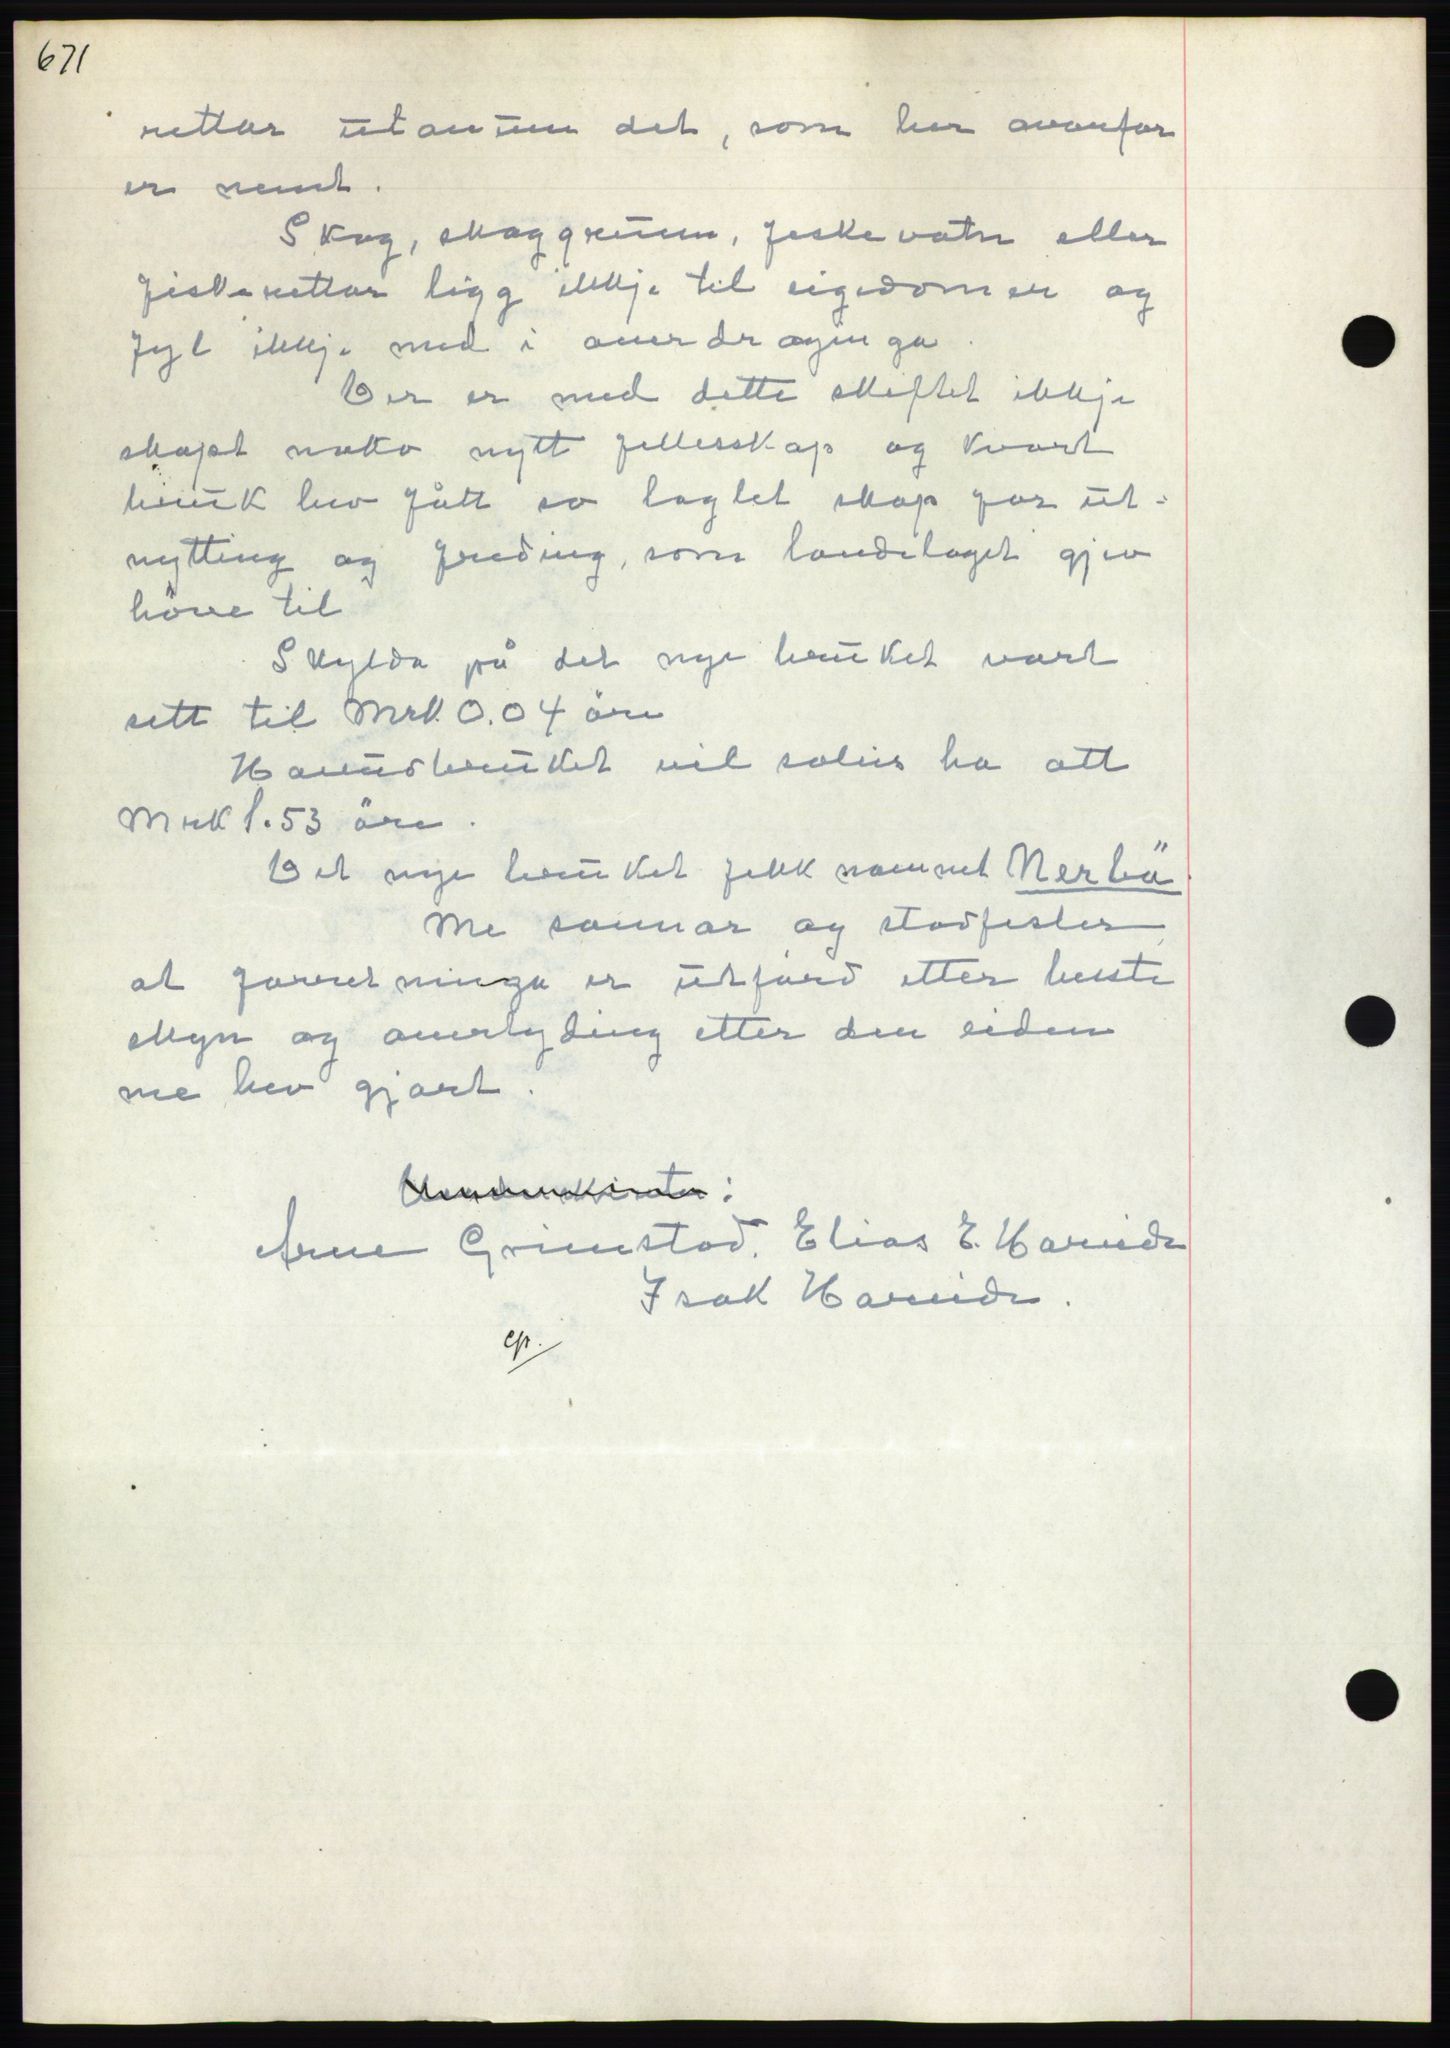 671
rettar utanum det, som her ovanfor
er nemt.
Skog, skoggrunn, feskevatn eller
fiskerettar ligg ikkje til eigedomen og
fylt ikkje med i overdraginga.
Der er med dette skiftet ikkje
skapt noko nytt fellesskap og kvart
bruk hev fått so laglet skap for ut-
nytting og freding, som landslaget gjev
høve til
Skylda på det nye bruket vart
sett til Mrk. 0.04 öre
Hovudbruket vil soleis ha att
Mrk 1.53 öre.
Det nye bruket fekk namnet Nerbö
Me sannar og stadfester
at forretninga er utförd etter beste
skyn og overtyding etter den eiden
me hev gjort.
Arne Grimstad. Elias E. Hareide
Isak Hareide.
ep.